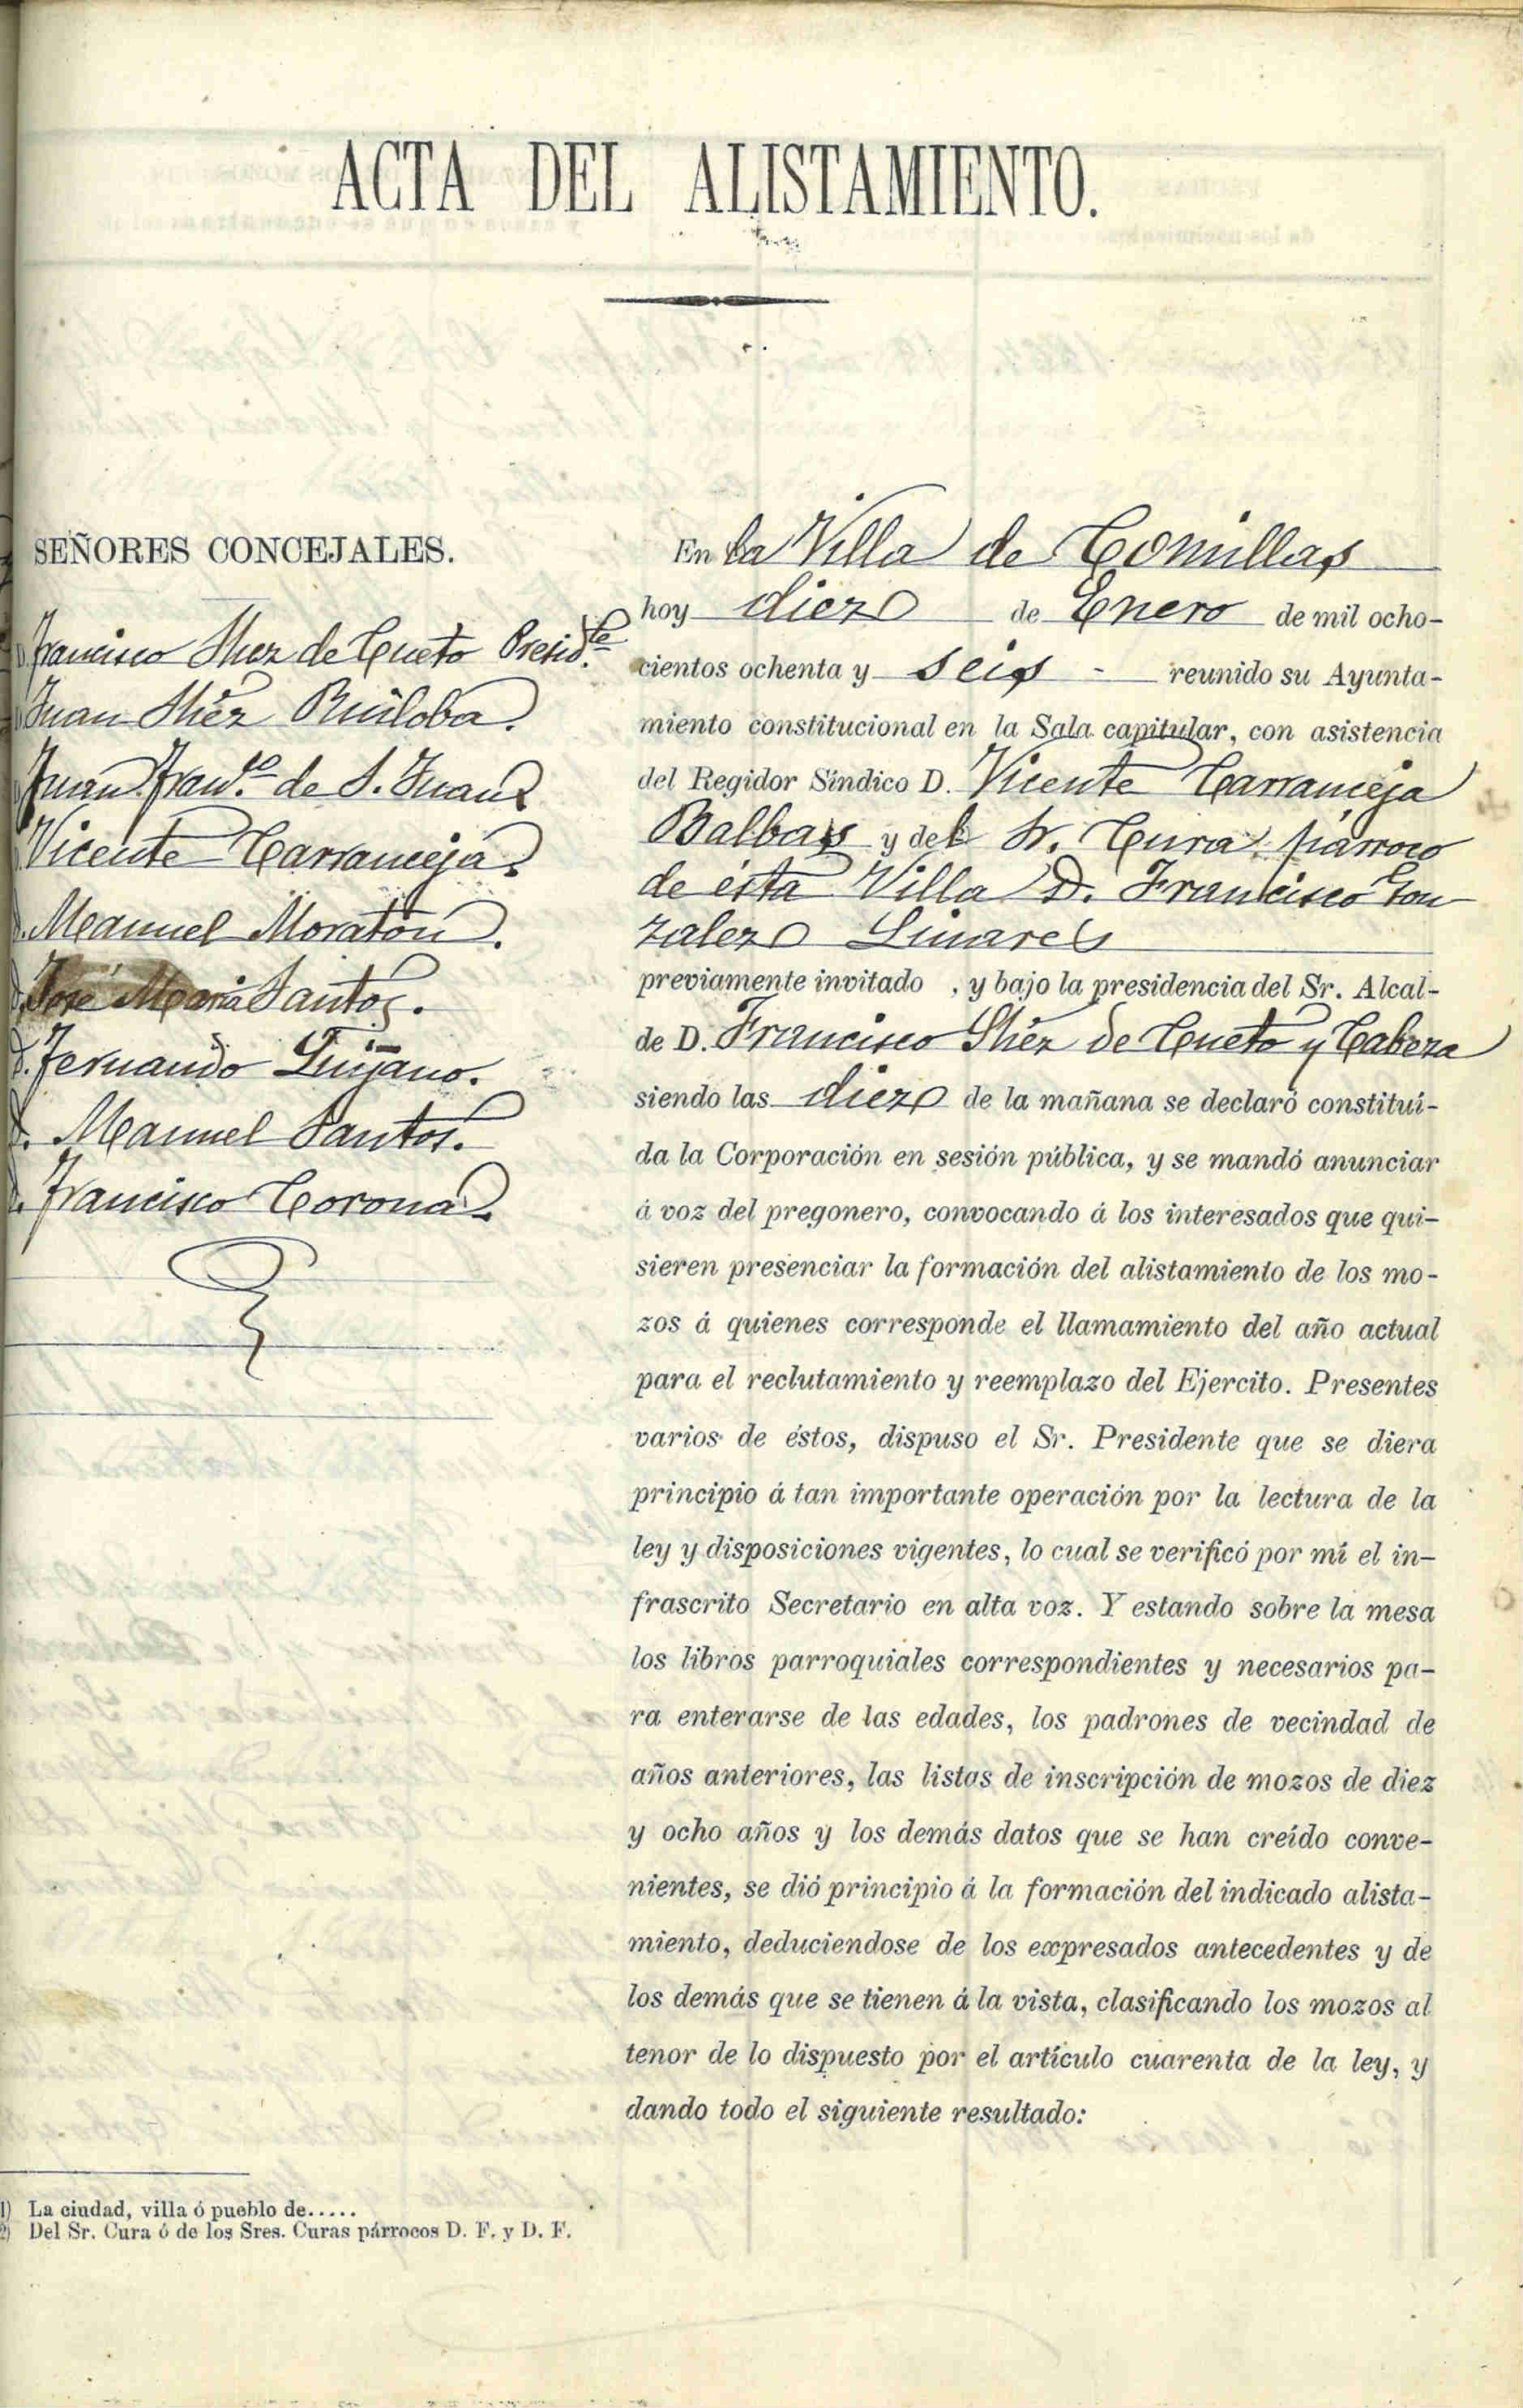 ACTA DEL ALISTAMIENTO.
SEÑORES CONCEJALES.
D. Francisco Shez de Cueto Presid.te
D. Juan Shéz Ruiloba.
D. Juan Fran.co de S. Juan
D. Vicente Carranceja.
D. Manuel Moratón.
D. José Maria Santos.
D. Fernando Quijano.
D. Manuel Santos.
D. Francisco Corona.
En la Villa de Comillas
hoy diez de Enero de mil ocho-
cientos ochenta y seis - reunido su Ayunta-
miento constitucional en la Sala capitular, con asistencia
del Regidor Síndico D. Vicente Carranceja
Balbas y del Sr. Cura párroco
de ésta Villa D. Francisco Gon
zalez Linares
previamente invitado , y bajo la presidencia del Sr. Alcal-
de D. Francisco Shéz de Cueto y Cabeza
siendo las diez de la mañana se declaró constituí-
da la Corporación en sesión pública, y se mandó anunciar
á voz del pregonero, convocando á los interesados que qui-
sieren presenciar la formación del alistamiento de los mo-
zos á quienes corresponde el llamamiento del año actual
para el reclutamiento y reemplazo del Ejercito. Presentes
varios de éstos, dispuso el Sr. Presidente que se diera
principio á tan importante operación por la lectura de la
ley y disposiciones vigentes, lo cual se verificó por mí el in-
frascrito Secretario en alta voz. Y estando sobre la mesa
los libros parroquiales correspondientes y necesarios pa-
ra enterarse de las edades, los padrones de vecindad de
años anteriores, las listas de inscripción de mozos de diez
y ocho años y los demás datos que se han creído conve-
nientes, se dió principio á la formación del indicado alista-
miento, deduciendose de los expresados antecedentes y de
los demás que se tienen á la vista, clasificando los mozos al
tenor de lo dispuesto por el artículo cuarenta de la ley, y
dando todo el siguiente resultado:
1) La ciudad, villa ó pueblo de.....
2) Del Sr. Cura ó de los Sres. Curas párrocos D. F. y D. F.